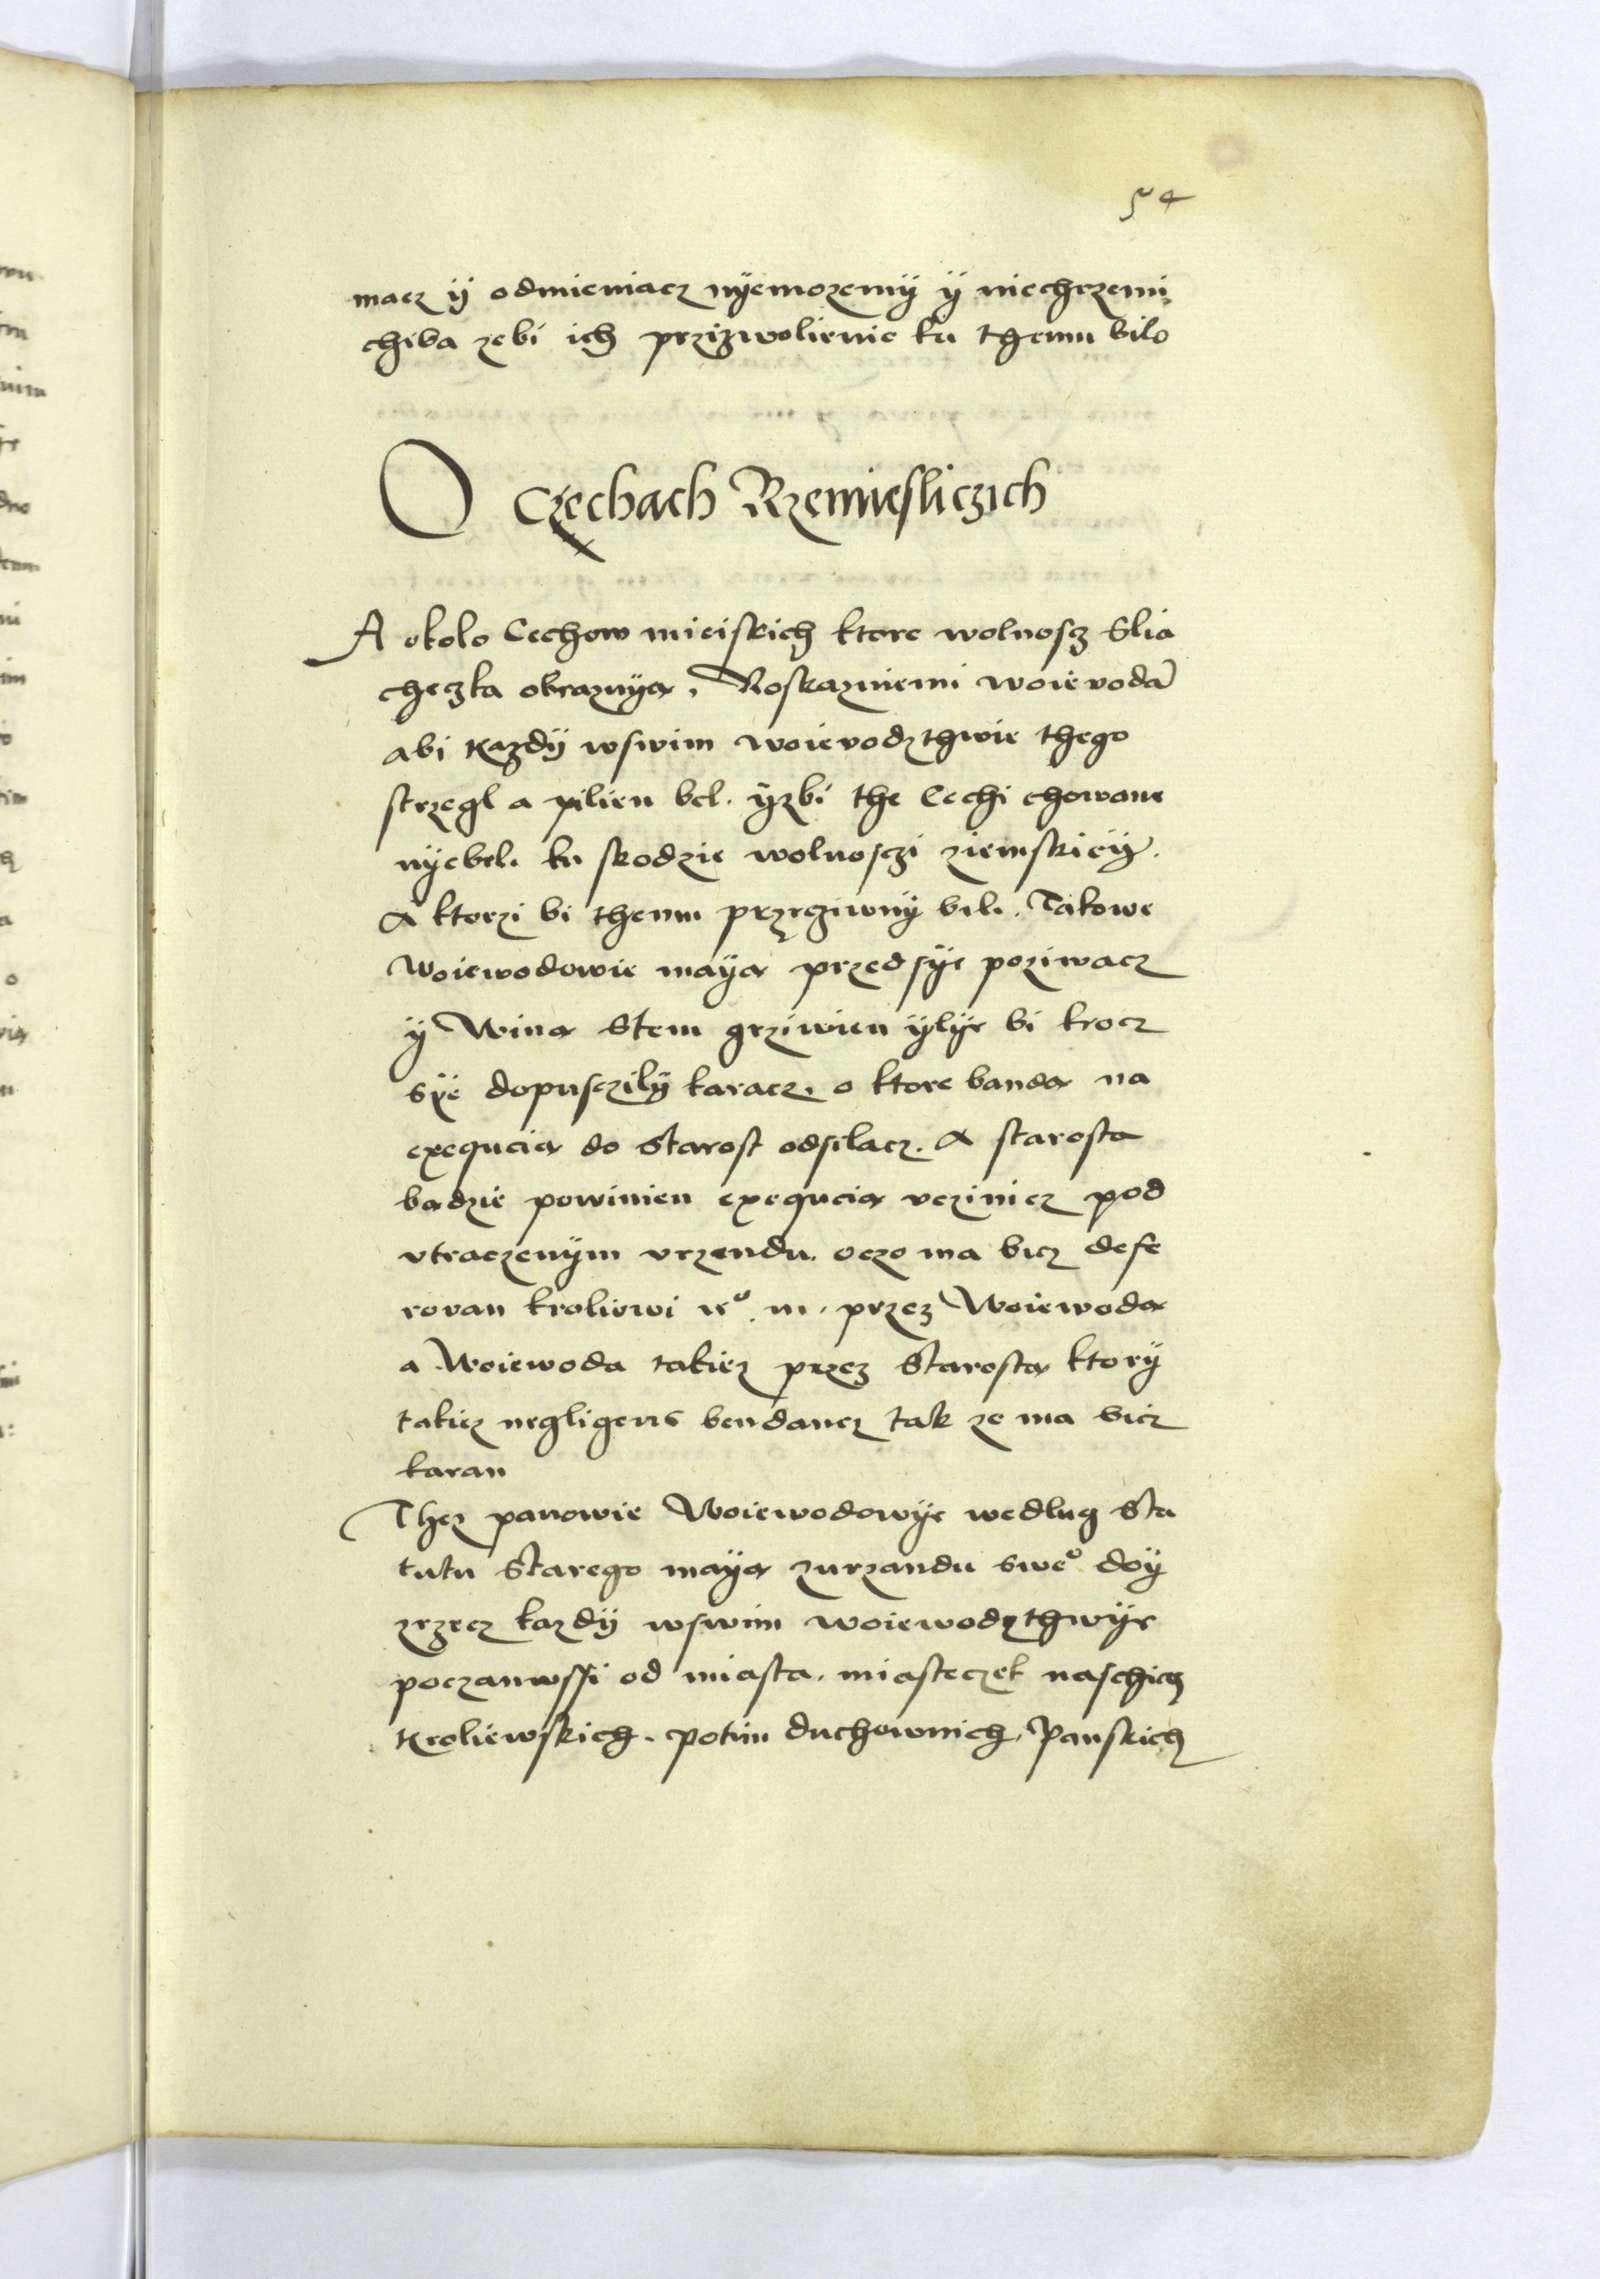 54
macz ÿ odmieniacz nÿemozemÿ ÿ niechczemi
chiba zebi ich przizwolienie ku themu bilo
O Czechach Rzemiesliczich
A okolo Cechow mieiskich ktore wolnoscz Slia
checzka obraznÿa. Roskazuiemi woievodā
abi kazdÿ wswim woievodzthwie thego
strzegl a pilien bel. ÿzbi the Cechi chowane
nÿebel. ku skodzie wolnosczi ziemskieÿ.
A ktorzi bi themu przecziwnÿ bili. Takowe
Woiewodowie maÿa przed sÿe poziwacz
ÿ Wina Stem grziwien ÿlÿe bi krocz
sÿe dopusczilÿ karacz. o ktore banda na
exequcia do Starost odsilacz. A starosta
badzie powinien exequcia vczinicz pod
vtraczenÿm vrzendu. oczo ma bicz defe
rovan kroliewi ieͦ. m. przez Woiewoda
a Woiewoda takiez przez Starosta ktorÿ
takiez negligens bendancz tak ze ma bicz
karan
Thez panowie Woiewodowÿe wedlug Sta
tutu Starego maÿa zurzandu sweͦ doÿ
zrzecz kazdÿ wswim woiewodzthwÿe
poczanwssi od miasta. miasteczek naschich
Kroliewskich. potim duchownich, Panskich